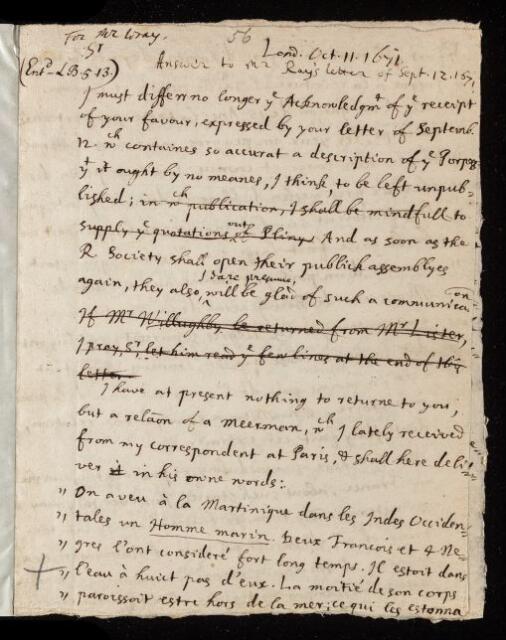 For Mr Wray. 56
Sr Lond. Oct. 11. 1671.
(Entd LB. 5. 13.) Answer to Mr Ray's letter of Sept. 12. 1671
I must differr no longer ye Acknowledgmt of ye receipt
of your favour, expressed by your letter of Septemb.
12. wch containes so accurat a description of ye Porpess
yt it ought by no meanes, I think, to be left unpub-
lished; in wch publication, I shall be mindfull to
supply ye quotations out of Pliny. And as soon as the
R. Society shall open their publick assemblyes
again, they also, I dare presume, will be glad of such a communica-on
If Mr Willughby be returned from Mr Lister,
I pray, Sr, let him read ye few lines at the end of this
letter.
I have at present nothing to returne to you,
but a relaon of a meerman, wch I lately received
from my correspondent at Paris, & shall here deli-
ver it in his owne words:
" On a veu à la Martinique dans les Indes Occiden-
" tales un Homme marin. Deux Francois et 4 Ne-
" gres l'ont consideré fort long temps. Il estoit dans
" l'eau à huict pas d'eux. La moitié de son corps
" paroissoit estre hors de la mer; ce qui les estonna